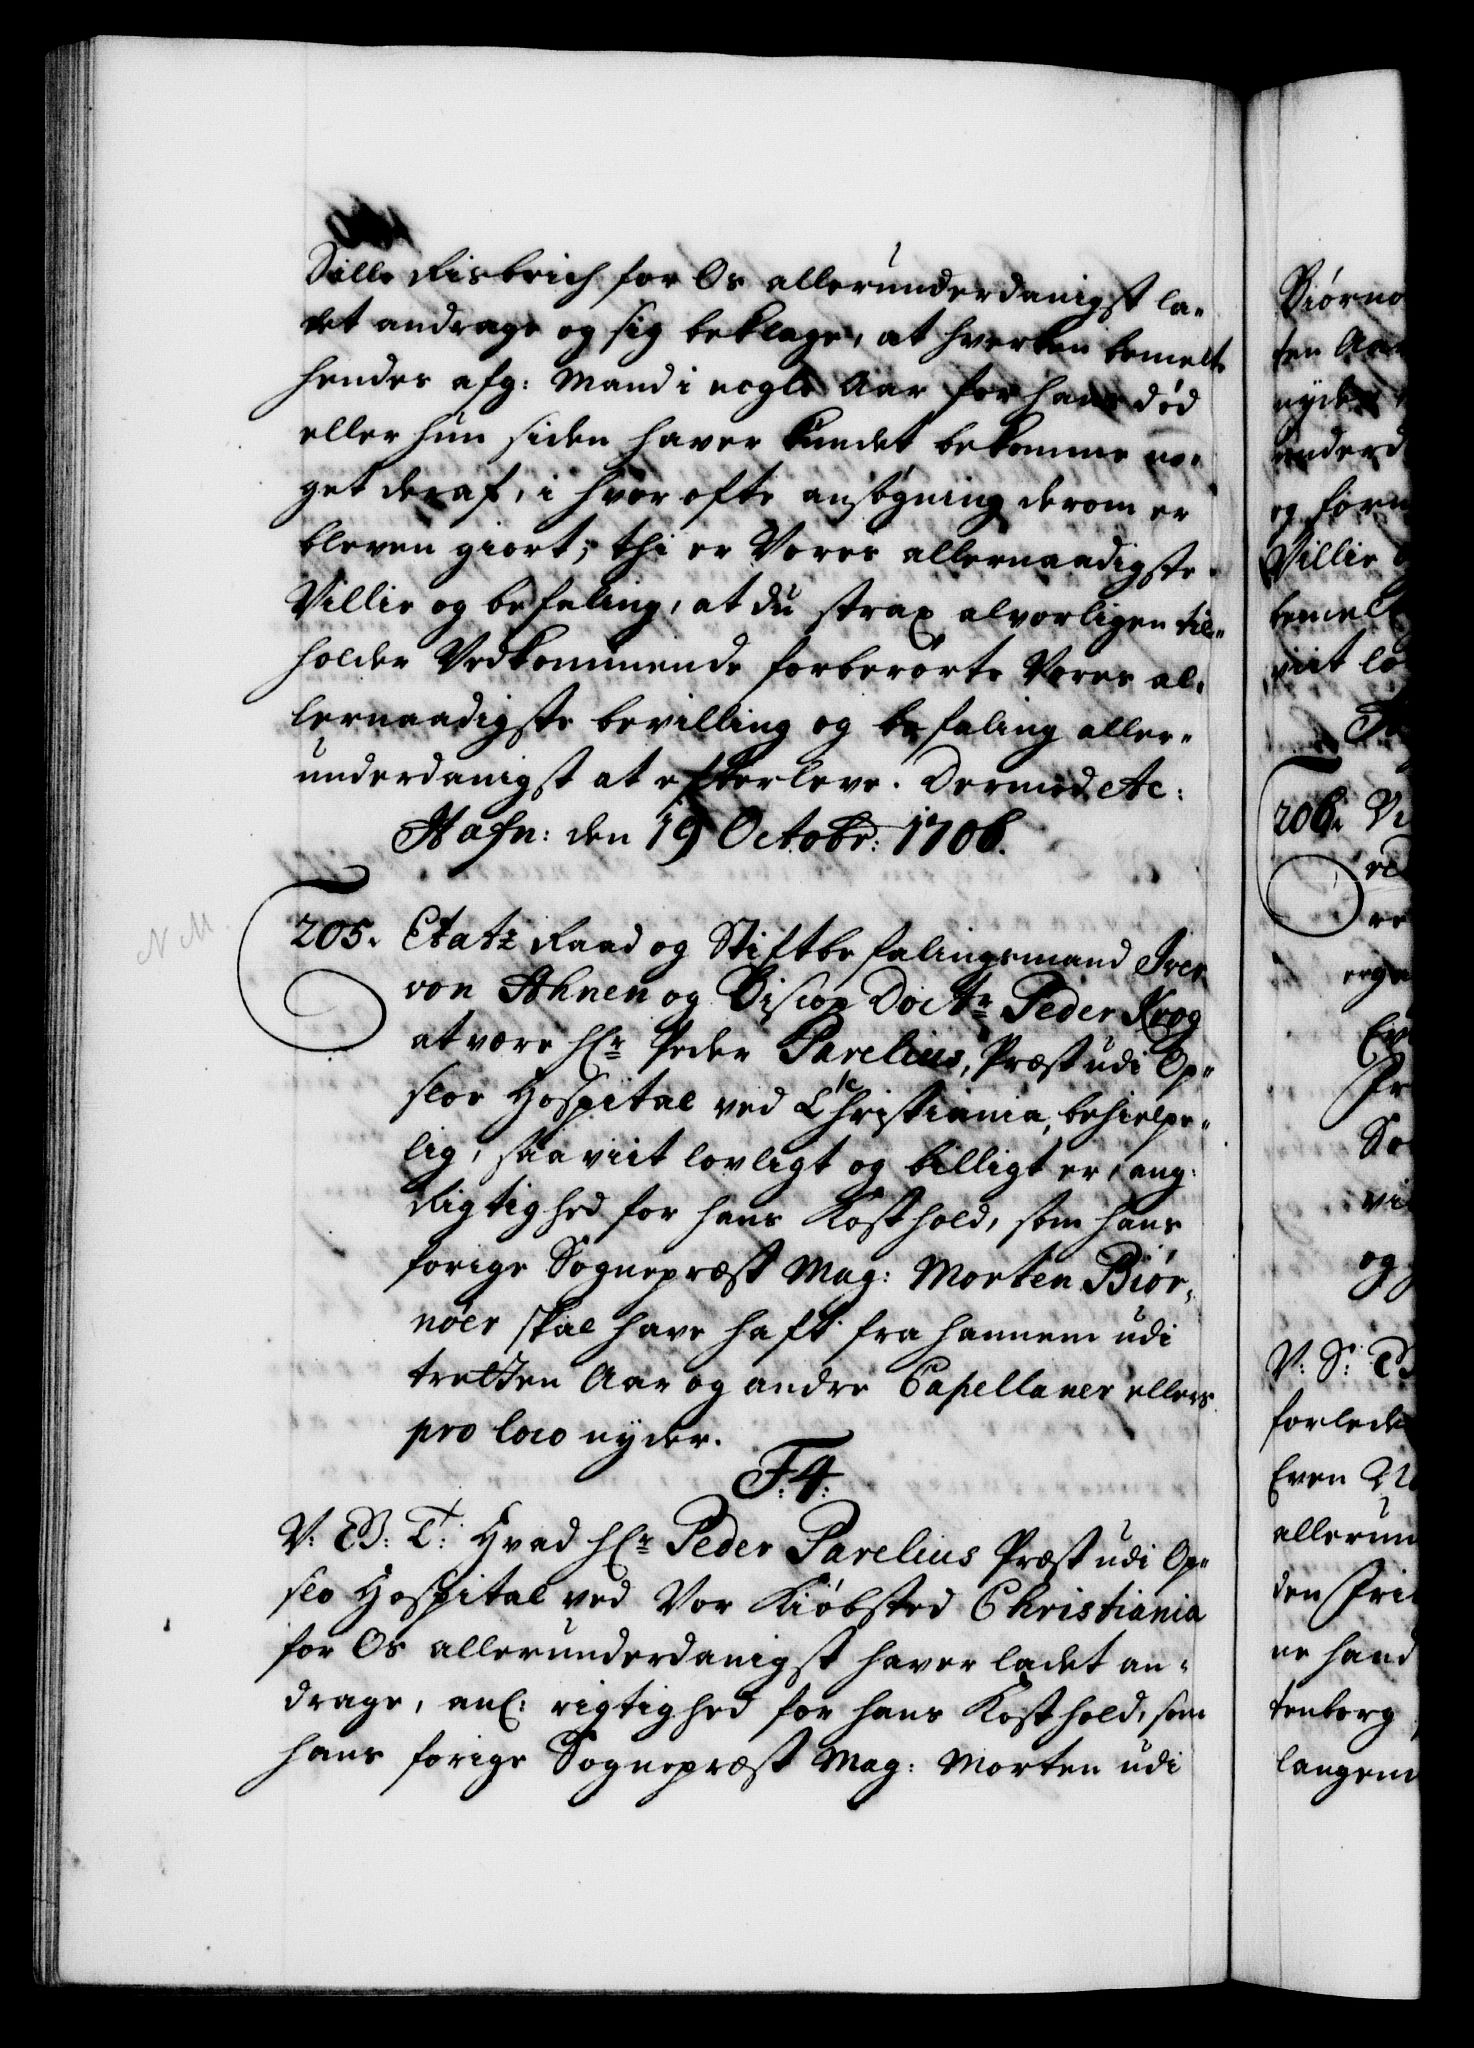 Sille Risbrich for Os allerunderdanigst la-
det andrage og sig beklage, at hverken bemelte
hendes afg: Mand i nogle Aar for hans død
eller hun siden haver kundet bekomme no-
get deraf, i hvor ofte ansøgning derom er
bleven giort; thi er Vores allernaadigste
Villie og befaling, at du strax alvorligen til-
holder Vedkommende forberørte Vores al-
lernaadigste bevilling og befaling aller-
underdanigst at efterleve. Dermed etc:
Hafn: den 19 Octobr: 1706.
N M.
205. Etatz Raad og Stiftbefalingsmand Iver
von Ahnen og Biscop Doctr Peder Krog
at være Hr Peder Parelius, Præst udi Op-
sloe Hospital ved Christiania, behielpe-
lig, saaviit lovligt og billigt er, ang:
Rigtighed for hans Kosthold, som hans
forige Sognepræst Mag: Morten Biør-
nøer skal have haft fra hannem udi
tretten Aar og andre Capellaner ellers
pro loco nyder.
F: 4:
V: B: T: Hvad Hr Peder Parelius Præst udi Op-
slo Hospital ved Vor Kiøbsted Christiania
for Os allerunderdanigst haver ladet an-
drage, anl: rigtighed for hans Kosthold, som
hans forige Sognepræst Mag: Morten udi
Biørnø
ten Aar
nyde
underd
og forn
Villie
bemelt
viit lo
206. Vi
og
V: S: B
forlede
Even
allerun
den Fri
ne hand
tenborg
langem